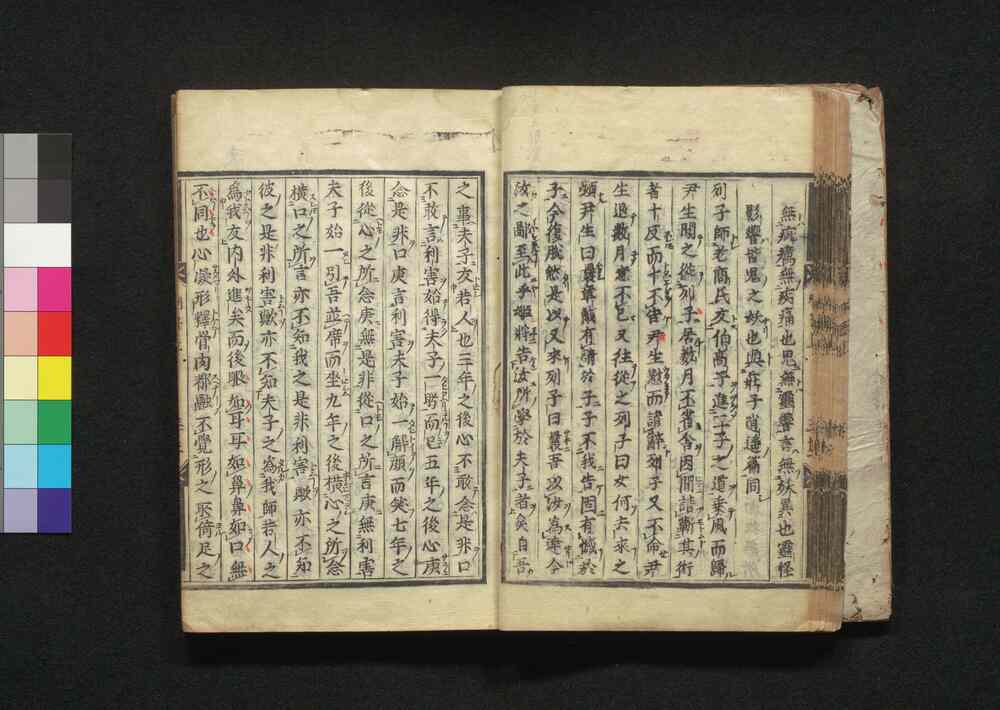 無疵癘無疾痛也鬼無靈響言無妖異也靈怪
影響皆鬼之妖也與莊子逍遙篇同
列子師老商氏友伯高子進二子之道乗風而歸
尹生聞之從列子居數月不省舎因間請蘄其術
者十反而十不告尹生懟而請辭列子又不命尹
生退數月意不已又往從之列子曰女何去來之
頻尹生曰曩章戴有請於子子不我告固有憾於
子今復脫然是以又來列子曰曩吾以汝為達今
汝之鄙至此乎姬將告汝所學於夫子者矣自吾
之事夫子友若人也三年之後心不敢念是非口
不敢言利害始得夫子一眄而已五年之後心庚
念是非口庚言利害夫子始一解顔而笑七年之
後從心之所念庚無是非從口之所言庚無利害
夫子始一引吾並席而坐九年之後横心之所念
横口之所言亦不知我之是非利害歟亦不知
彼之是非利害歟亦不知夫子之為我師若人之
為我友内外進矣而後眼如耳耳如鼻鼻如口無
不同也心凝形釋骨肉都融不覺形之所倚足之